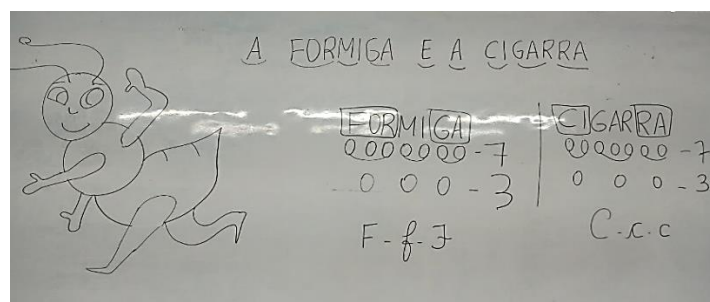 A FORMIGA E A CIGARRA
FORMIGA
0000000-7
0 0 0 - 3
F-f-F
CIGARRA
0000000-7
0 0 0 - 3
C.c.c